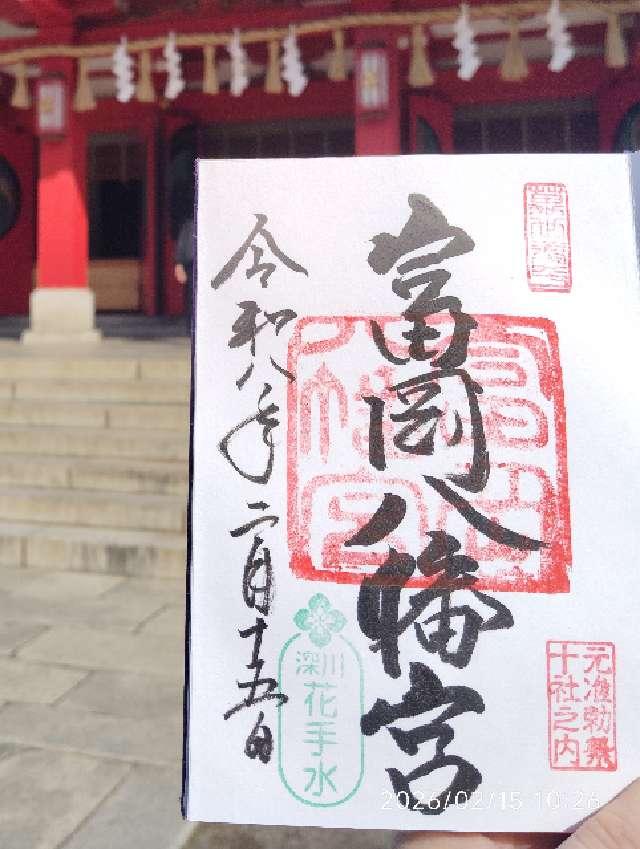 富岡八幡宮
令和八年二月十五日
元准勅祭
十社之内
深川
花手水
2026/02/15 10:26